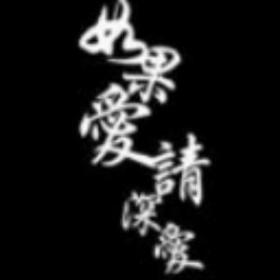 如果
愛
請
深愛